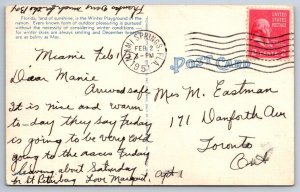 Florida, land of sunshine, is the Winter Playground in the
nation. Every known form of outdoor pleasuring is pursued
without the necessity of considering winter conditions, for
winter skies are always smiling and December breezes
are as balmy as May.
FEB 2
PM
POST CARD
Miami Feb 1
Dear Manie
Arrived safe
It is nice and warm
to-day they say Friday
is going to be very cold
going to the races Friday
leaving about Saturday
for St Petersburg Love Margaret
Mrs M. Eastman
171 Danforth Ave
Toronto
Ont
Apt 1